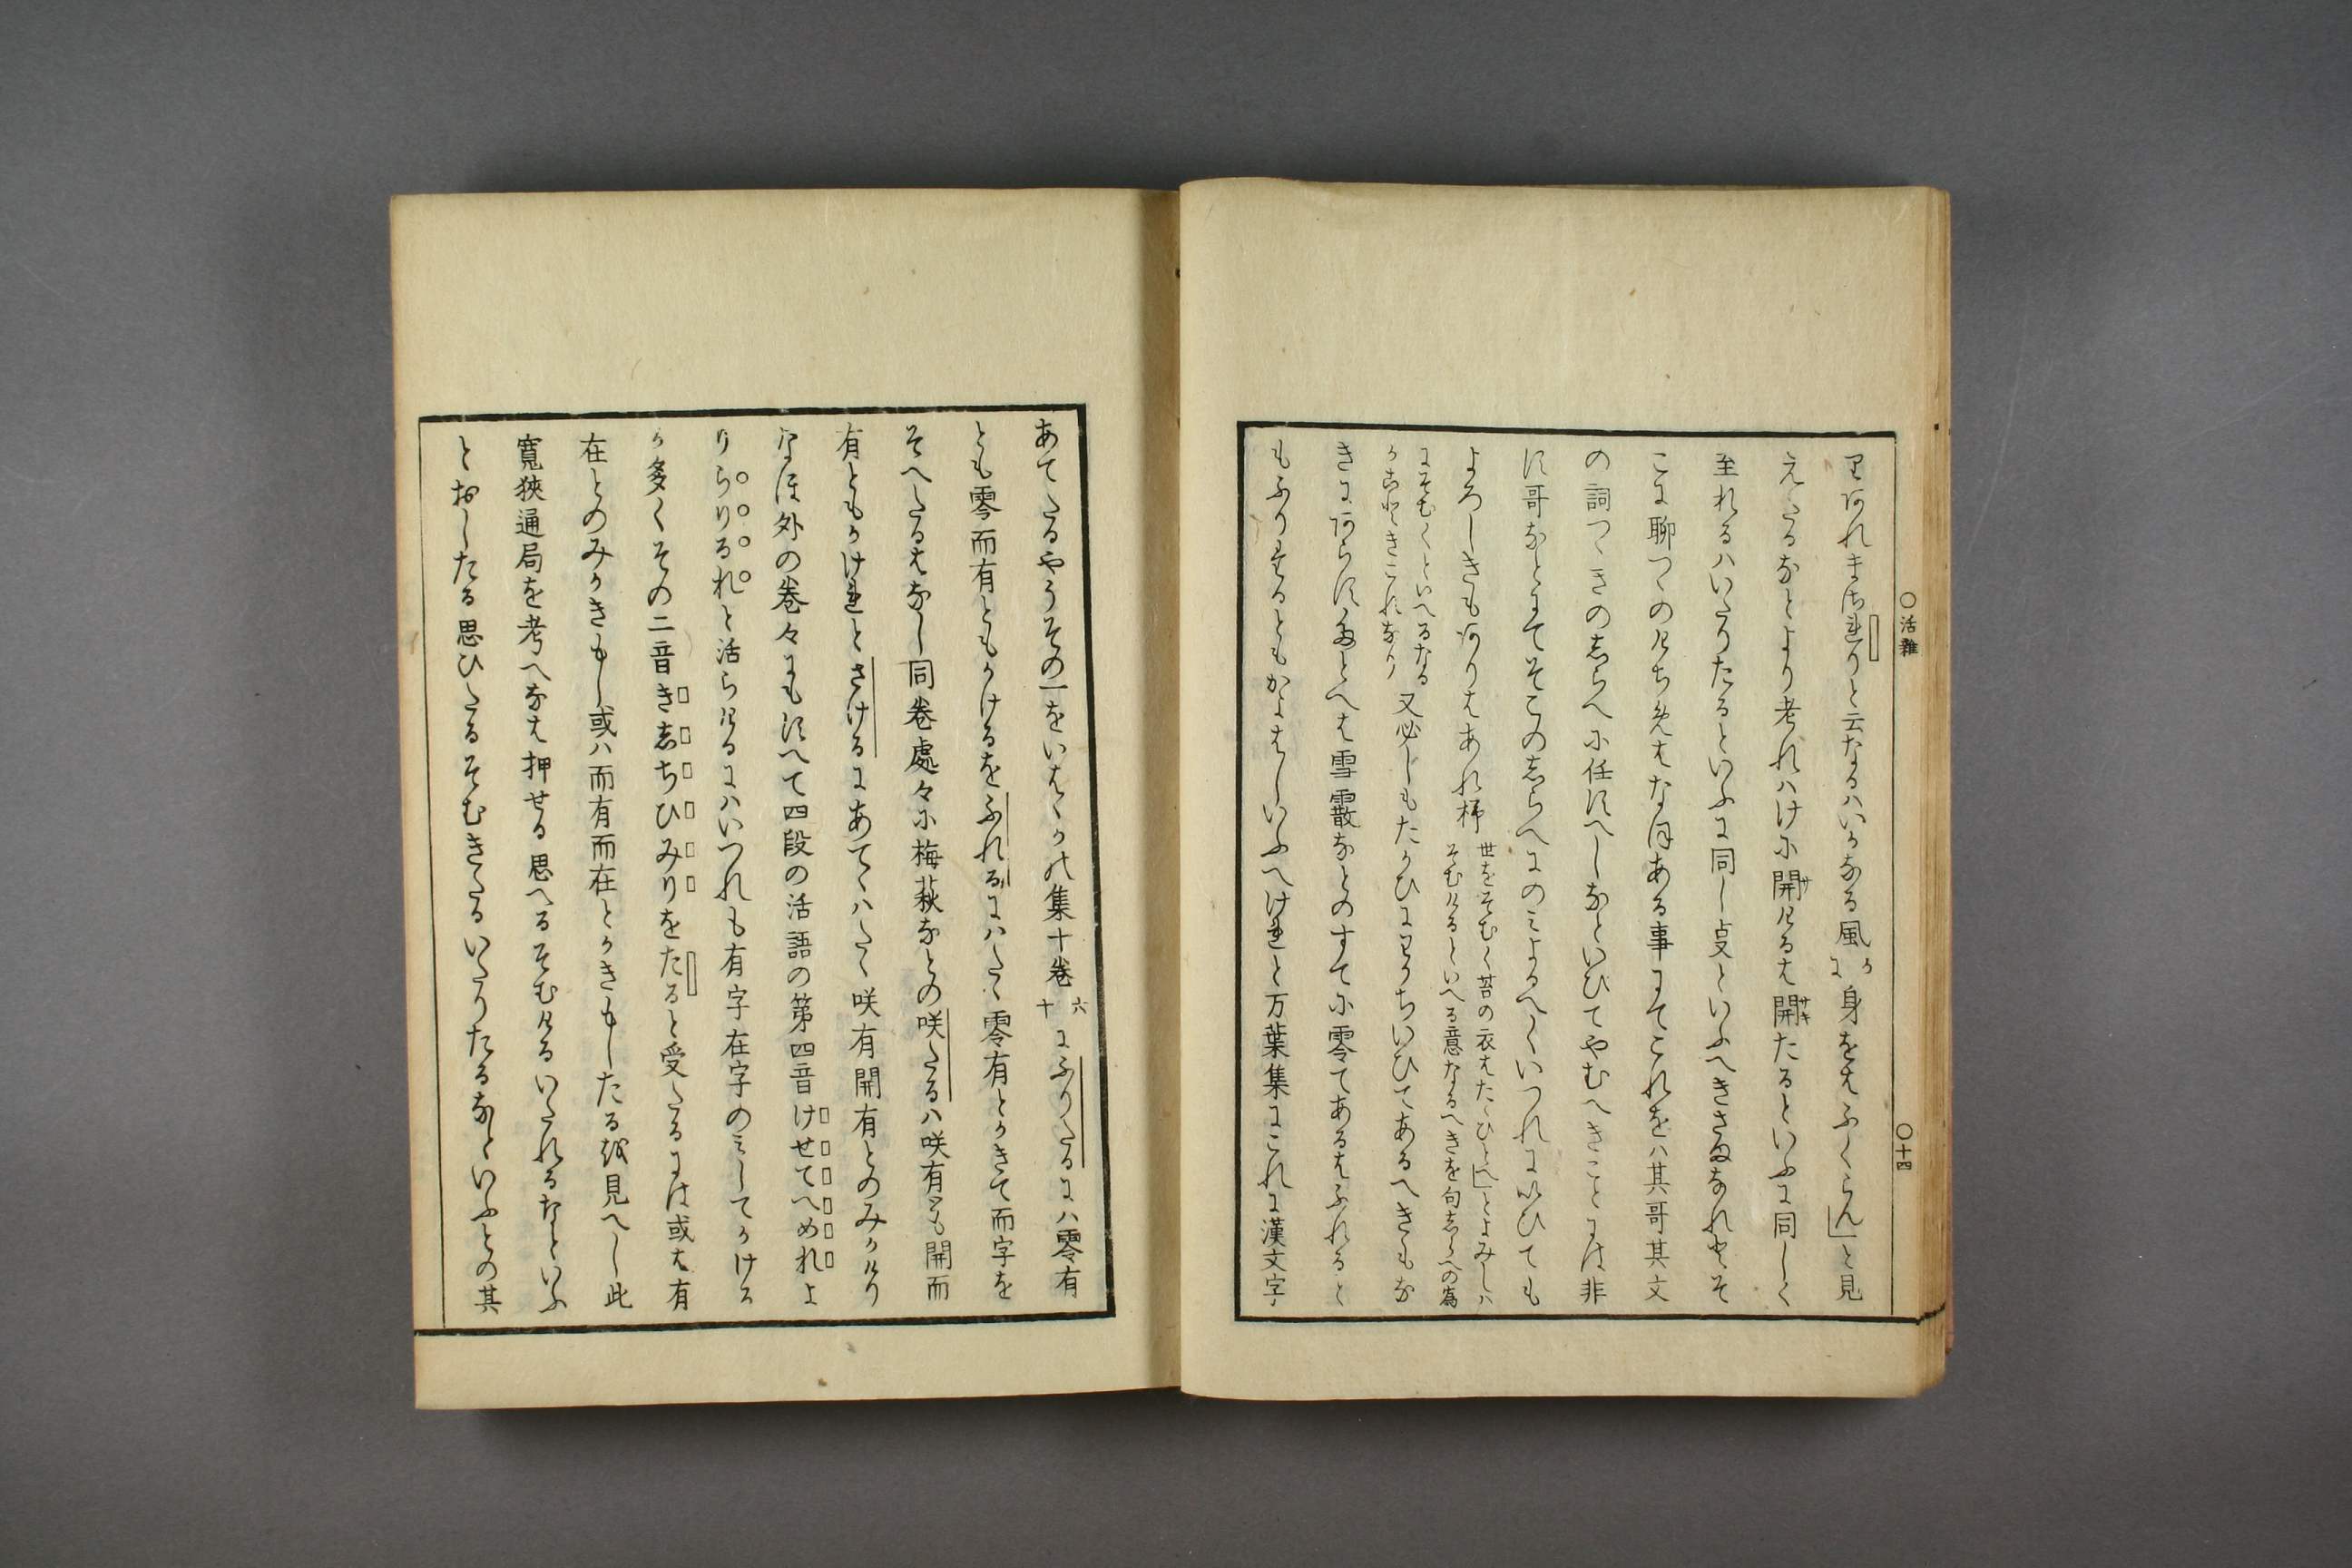 〇活雜
〇十四
りあれまされりと云なるハいかなる風にか身をはふくらん」と見
えたるなとより考れハけに開けるは開たるといふに同しく
至れるハいたりたるといふに同し支といふへきさまなれとそ
こに聊つゝのけちめはなほある事にてこれをハ其哥其文
の詞つゝきの志らへに任すへしなといひてやむへきことには非
す哥なとにてそこの志らへにのミよるへくいつれにいひても
よろしきもありはあれ梯
世をそむく苔の衣はたゝひとへ」とよみしハ
そむけるといへる意なるへきを句志らへの為
にそむくといへるなる
かことき これなり
又必しもたかひにわかちいひてあるへきもな
きにあらすたとへは雪霰なとのすてに零てあるはふれると
もふりたるともかよはしいふへけれと万葉集にこれに漢文字
あてたるやうその一をいはゝかの集十卷
六
十
にふりたるにハ零有
とも零而有ともかけるをふれるにハたゝ零有とかきて而字を
そへたるはなし同卷處々に梅萩なとの咲たるハ咲有とも開而
有ともかけれとさけるにあてゝハたゝ咲有開有とのみかけり
なほ外の卷々にもすへて四段の活語の第四音けせてへめれよ
りらりるれと活らけるにハいつれも有字在字のミしてかける
か多くその二音き志ちひみりをたると受たるには或は有
在とのみかきもし或ハ而有而在とかきもしたる越見へし此
寛狹通局を考へなは押せる思へるそむけるいたれるなといふ
とおしたる思ひたるそむきたるいたりたるなといふとの其